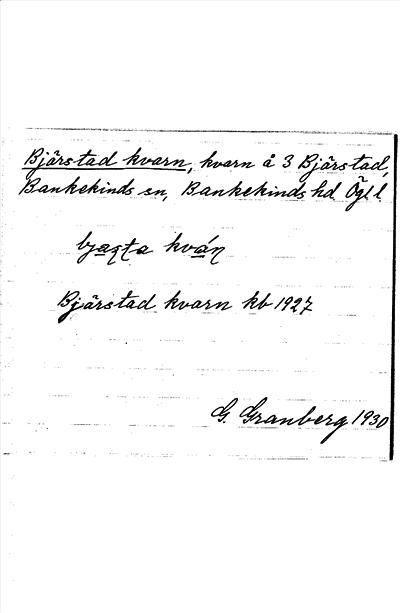 Bjärstad kvarn, kvarn å 3 Bjärstad,
Bankekinds sn, Bankekinds hd Ögl l
kván
Bjärstad kvarn kb 1927
G. Granberg 1930